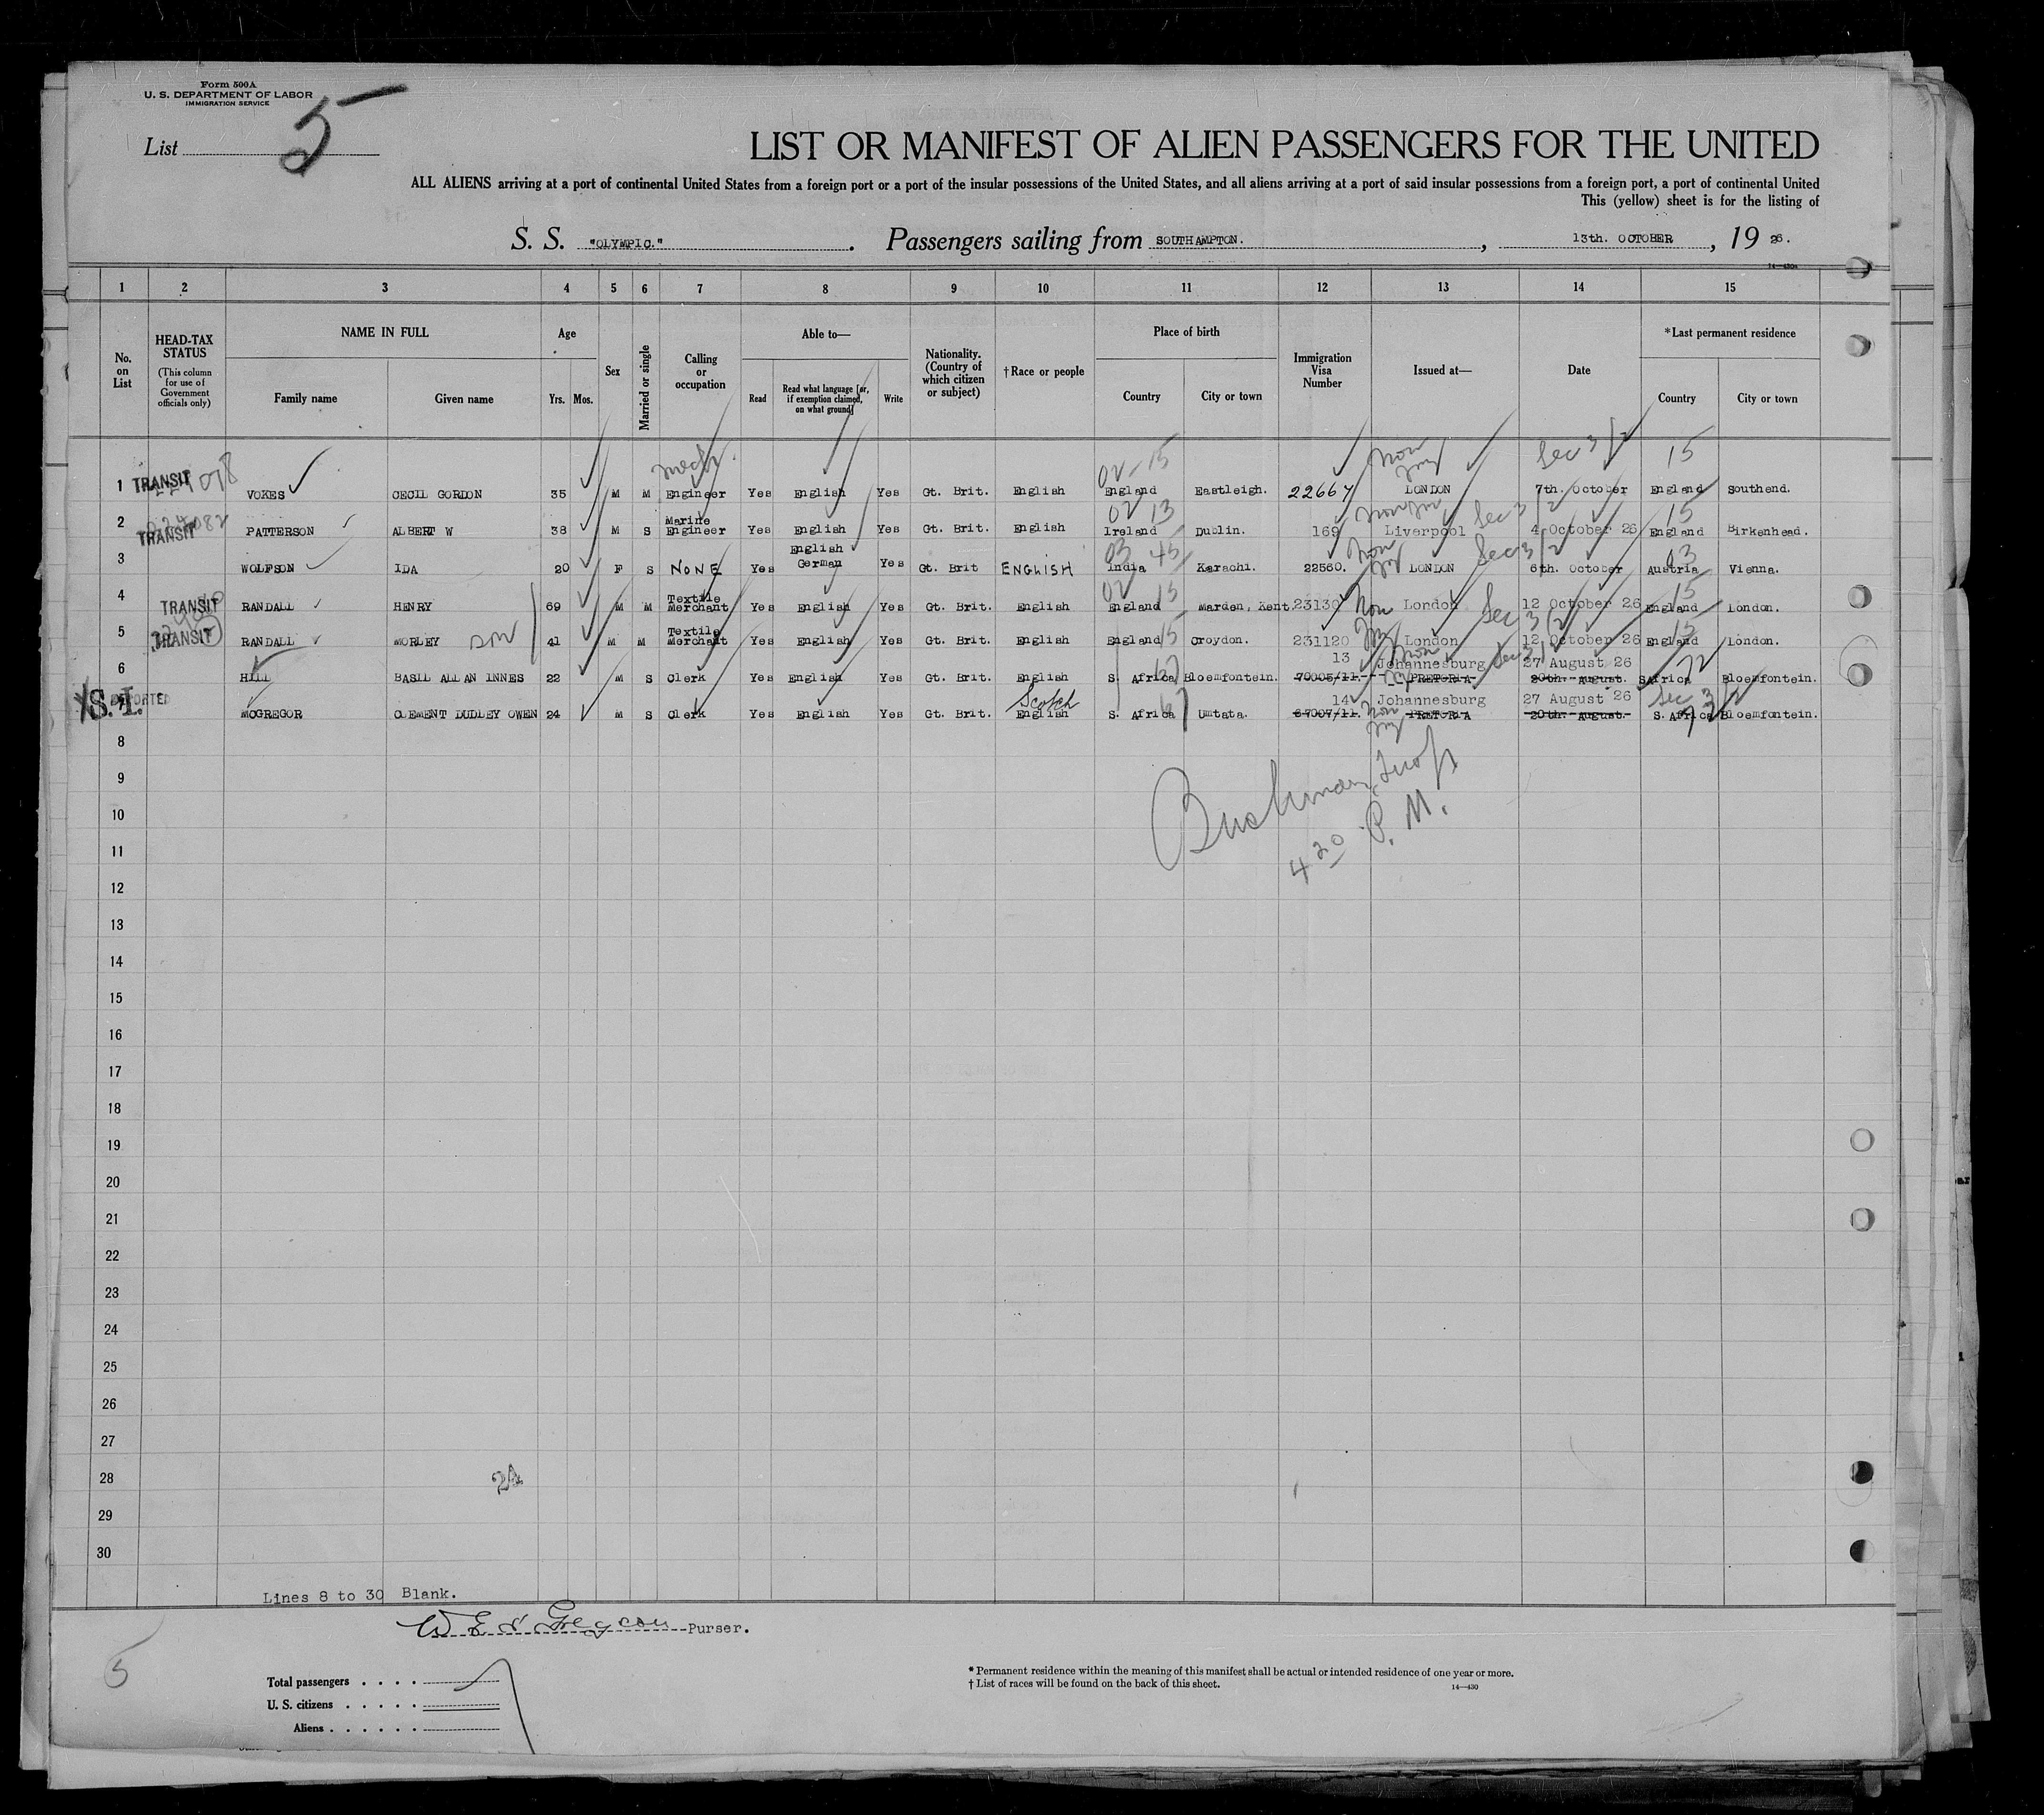 Form 500A
U. S. DEPARTMENT OF LABOR
IMMIGRATION SERVICE
List 5
LIST OR MANIFEST OF ALIEN PASSENGERS FOR THE UNITED
ALL ALIENS arriving at a port of continental United States from a foreign port or a port of the insular possessions of the United States, and all aliens arriving at a port of said insular possessions from a foreign port, a port of continental United
This (yellow) sheet is for the listing of
S. S. "OLYMPIC." . Passengers sailing from SOUTHAMPTON. , 13th. OCTOBER , 19 26.
14—430a
1 2 3 4 5 6 7 8 9 10 11 12 13 14 15
No. on List
HEAD-TAX STATUS (This column for use of Government officials only)
NAME IN FULL
Family name Given name
Age
Yrs. Mos.
Sex
Married or single
Calling or occupation
Able to—
Read Read what language [or, if exemption claimed, on what ground] Write
Nationality. (Country of which citizen or subject)
†Race or people
Place of birth
Country City or town
Immigration Visa Number
Issued at—
Date
*Last permanent residence
Country City or town
02-15 Sec 3/2 15
1 TRANSIT VOKES CECIL GORDON 35 M M Engineer Yes English Yes Gt. Brit. English England Eastleigh. 22667 LONDON 7th. October England Southend.
02 13 Sec 3/2 15
2 TRANSIT PATTERSON ALBERT W 38 M S Marine Engineer Yes English Yes Gt. Brit. English Ireland Dublin. 169 Liverpool 4 October 26 England Birkenhead.
03 45 Non Sec 3/2 03
3 WOLFSON IDA 20 F S NONE Yes English German Yes Gt. Brit ENGLISH India Karachi. 22560. LONDON 6th. October Austria Vienna.
02 15 15
4 TRANSIT RANDALL HENRY 69 M M Textile Merchant Yes English Yes Gt. Brit. English England Marden, Kent. 23130 Non London Sec 3/2 12 October 26 England London.
5 TRANSIT RANDALL MORLEY son 41 M M Textile Merchant Yes English Yes Gt. Brit. English England 15 Croydon. 231120 London 12 October 26 England 15 London.
13 Johannesburg Sec 3/2 27 August 26
6 HILL BASIL ALLAN INNES 22 M S Clerk Yes English Yes Gt. Brit. English S. Africa 67 Bloemfontein. 70005/11. PRETORIA 20th. August. S Africa 72 Bloemfontein.
Scotch 14 Johannesburg 27 August 26 Sec 3/2
7 S.I. DEPORTED MCGREGOR CLEMENT DUDLEY OWEN 24 M S Clerk Yes English Yes Gt. Brit. English S. Africa 67 Umtata. 67007/11. Non PRETORIA 20th. August. S. Africa Bloemfontein.
8
9
10
4 20 P. M.
11
12
13
14
15
16
17
18
19
20
21
22
23
24
25
26
27
28
29
30
Lines 8 to 30 Blank.
Purser.
5
Total passengers . . . . 7
U. S. citizens . . . . .
Aliens . . . . . .
* Permanent residence within the meaning of this manifest shall be actual or intended residence of one year or more.
† List of races will be found on the back of this sheet.
14—430